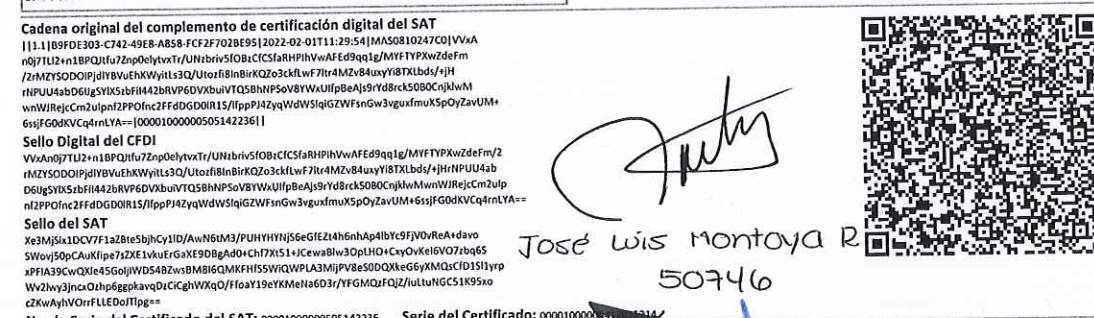 Cadena original del complemento de certificación digital del SAT
||1.1|B9FDE303-C742-49E8-A858-FCF2F702BE95|2022-02-01T11:29:54|MAS0810247C0|VVxA
n0j7TLI2+n1BPQJtfu7Znp0elytvxTr/UNzbriv5fOBzCfCSfaRHPIhVwAFEd9qq1g/MYFTYPXwZdeFm
/2rMZYSODOIPjdlYBVuEhKWyitLs3Q/Utozfi8InBirKQZo3ckfLwF7Itr4MZv84uxyYi8TXLbds/+jH
rNPUU4abD6UgSYIX5zbFil442bRVP6DVXbuiVTQ5BhNPSoV8YWxUIfpBeAjs9rYd8rck50B0CnjklwM
wnWJRejcCm2uIpnf2PPOfnc2FFdDGD0IR1S/IfppPJ4ZyqWdWSlqiGZWFsnGw3vguxfmuX5pOyZavUM+
6ssjFG0dKVCq4rnLYA==|00001000000505142236||
Sello Digital del CFDI
VVxAn0j7TLI2+n1BPQJtfu7Znp0elytvxTr/UNzbriv5fOBzCfCSfaRHPIhVwAFEd9qq1g/MYFTYPXwZdeFm/2
rMZYSODOIPjdlYBVuEhKWyitLs3Q/Utozfi8InBirKQZo3ckfLwF7Itr4MZv84uxyYi8TXLbds/+jHrNPUU4ab
D6UgSYIX5zbFil442bRVP6DVXbuiVTQ5BhNPSoV8YWxUIfpBeAjs9rYd8rck50B0CnjklwMwnWJRejcCm2uIp
nf2PPOfnc2FFdDGD0IR1S/IfppPJ4ZyqWdWSlqiGZWFsnGw3vguxfmuX5pOyZavUM+6ssjFG0dKVCq4rnLYA==
Sello del SAT
Xe3MjSix1DCV7F1aZBte5bjhCy1lD/AwN6tM3/PUHYHYNjS6eGfEZt4h6nhAp4lbYc9FjV0vReA+davo
SWovj50pCAuKfipe7sZXE1vkuErGaXE9DBgAd0+Chf7Xt51+JCewaBlw3OpLHO+CxyOvKel6VO7zbq6S
xPFIA39CwQXle45GoljIWD54BZwsBM8I6QMKFHfS5WiQWPLA3MijPV8eS0DQXkeG6yXMQsCfD1Sl1yrp
Wv2lwy3jncxOzhp6ggpkavqDzCiCghWXqO/FfoaY19eYKMeNa6D3r/YFGMQzFQjZ/iuLtuNGC51K95xo
cZKwAyhVOrrFLLEDoJTlpg==
José Luis Montoya R
50746